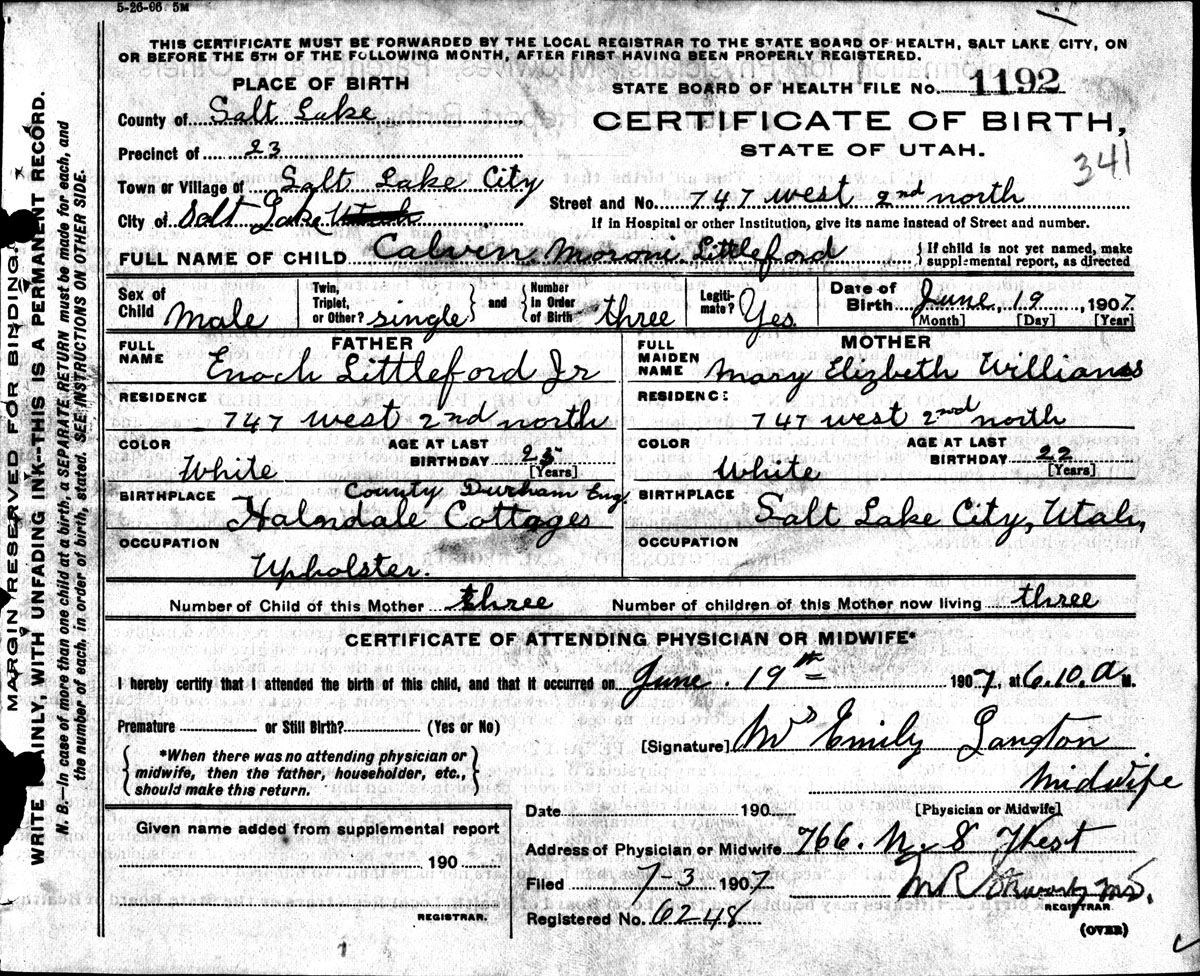 5-26-06 5M
THIS CERTIFICATE MUST BE FORWARDED BY THE LOCAL REGISTRAR TO THE STATE BOARD OF HEALTH, SALT LAKE CITY, ON
OR BEFORE THE 5TH OF THE FOLLOWING MONTH, AFTER FIRST HAVING BEEN PROPERLY REGISTERED.
PLACE OF BIRTH
STATE BOARD OF HEALTH FILE No. 1192
County of Salt Lake
CERTIFICATE OF BIRTH,
Precinct of 23
STATE OF UTAH.
341
Town or Village of Salt Lake City
Street and No. 747 west 2nd north
City of Salt Lake Utah
If in Hospital or other Institution, give its name instead of Street and number.
FULL NAME OF CHILD Calvin Moroni Littleford
If child is not yet named, make
supplemental report, as directed
Sex of Child Male
Twin, Triplet, or Other? single
and Number in Order of Birth three
Legitimate? Yes.
Date of Birth June, 19, 1907.
[Month] [Day] [Year]
FATHER
FULL NAME Enoch Littleford Jr
RESIDENCE
747 west 2nd north
COLOR White
AGE AT LAST BIRTHDAY 25
[Years]
BIRTHPLACE County Durham Eng.
Cottages
OCCUPATION
Upholster.
MOTHER
FULL MAIDEN NAME Mary Elizbeth Willians
RESIDENCE
747 west 2nd north
COLOR White
AGE AT LAST BIRTHDAY 22
[Years]
BIRTHPLACE
Salt Lake City, Utah,
OCCUPATION
Number of Child of this Mother three
Number of children of this Mother now living three
CERTIFICATE OF ATTENDING PHYSICIAN OR MIDWIFE*
I hereby certify that I attended the birth of this child, and that it occurred on June. 19th 1907, at 6.10. A M.
Premature or Still Birth? (Yes or No)
[Signature] Mrs Emily Langton
*When there was no attending physician or
midwife, then the father, householder, etc.,
should make this return.
Midwife
Date 190
[Physician or Midwife]
Given name added from supplemental report
190
REGISTRAR.
Address of Physician or Midwife 766. N. 8
Filed 7-3 1907
M R MD.
REGISTRAR
Registered No. 6248
(OVER)
MARGIN RESERVED FOR BINDING.
WRITE PLAINLY, WITH UNFADING INK--THIS IS A PERMANENT RECORD.
N. B.—In case of more than one child at a birth, a SEPARATE RETURN must be made for each, and
the number of each, in order of birth, stated. SEE INSTRUCTIONS ON OTHER SIDE.